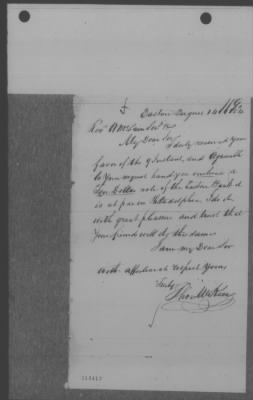 Easton August 14
My Dear Sir
I duly received your
favor of the 9 Instant, and agreeable
to your request hand you enclosed a
Ten Dollar note of the Easton Bank it
is at par in Philadelphia. I do it
with great pleasure and trust that
your friend will do the same
I am my Dear Sir
with affectionate respect Yours
Truly
Thos McKeen